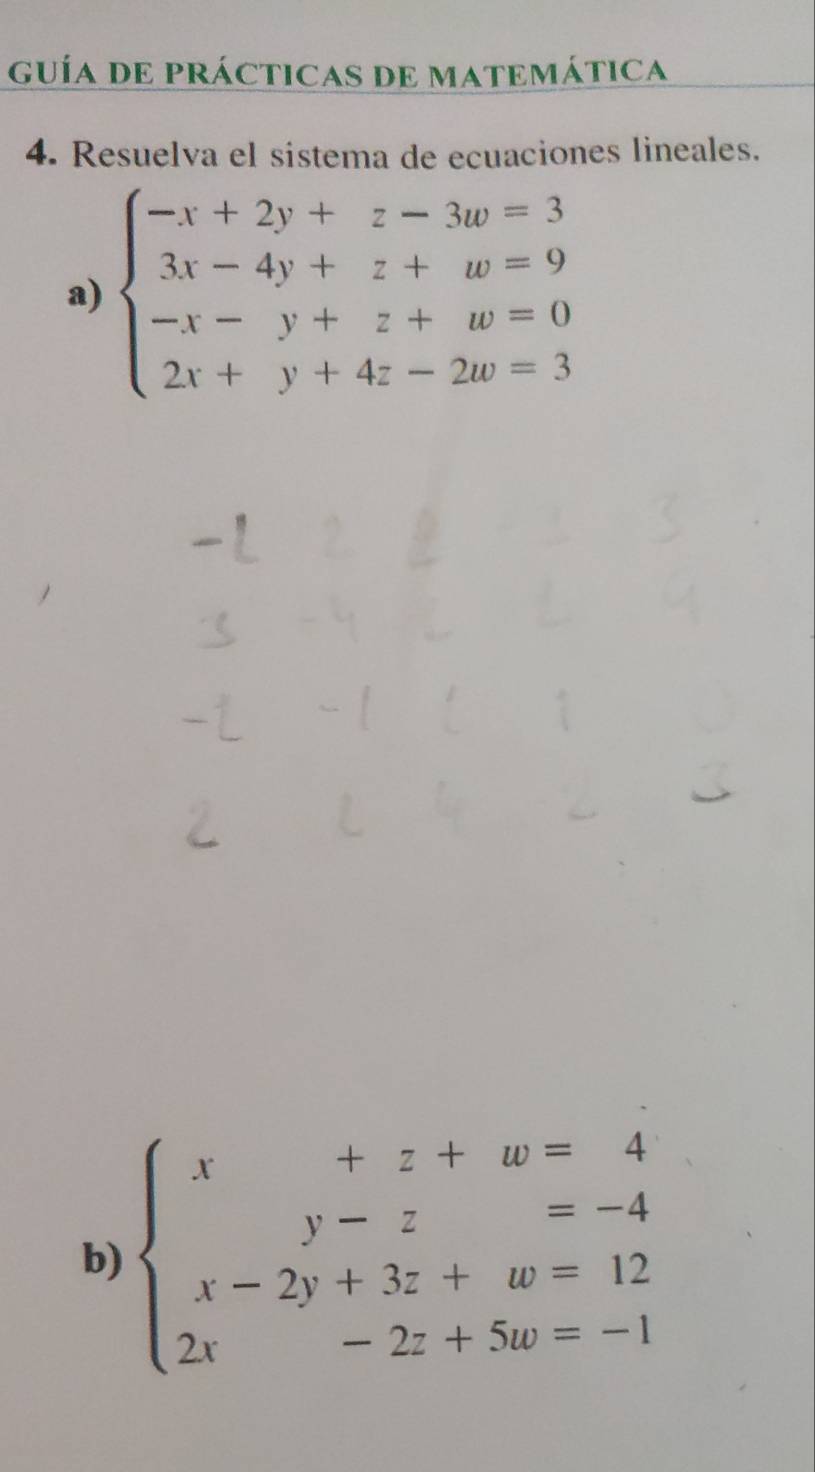 GUÍA DE PRÁCTICAS DE MATEMÁTICA
4. Resuelva el sistema de ecuaciones lineales.
a)
−x + 2y + z − 3w = 3
3x − 4y + z + w = 9
−x − y + z + w = 0
2x + y + 4z − 2w = 3
-1 2 3
3 -4 1 9
-1 -1 1 1 0
2 1 4 2 3
b)
x + z + w = 4
y − z = −4
x − 2y + 3z + w = 12
2x − 2z + 5w = −1